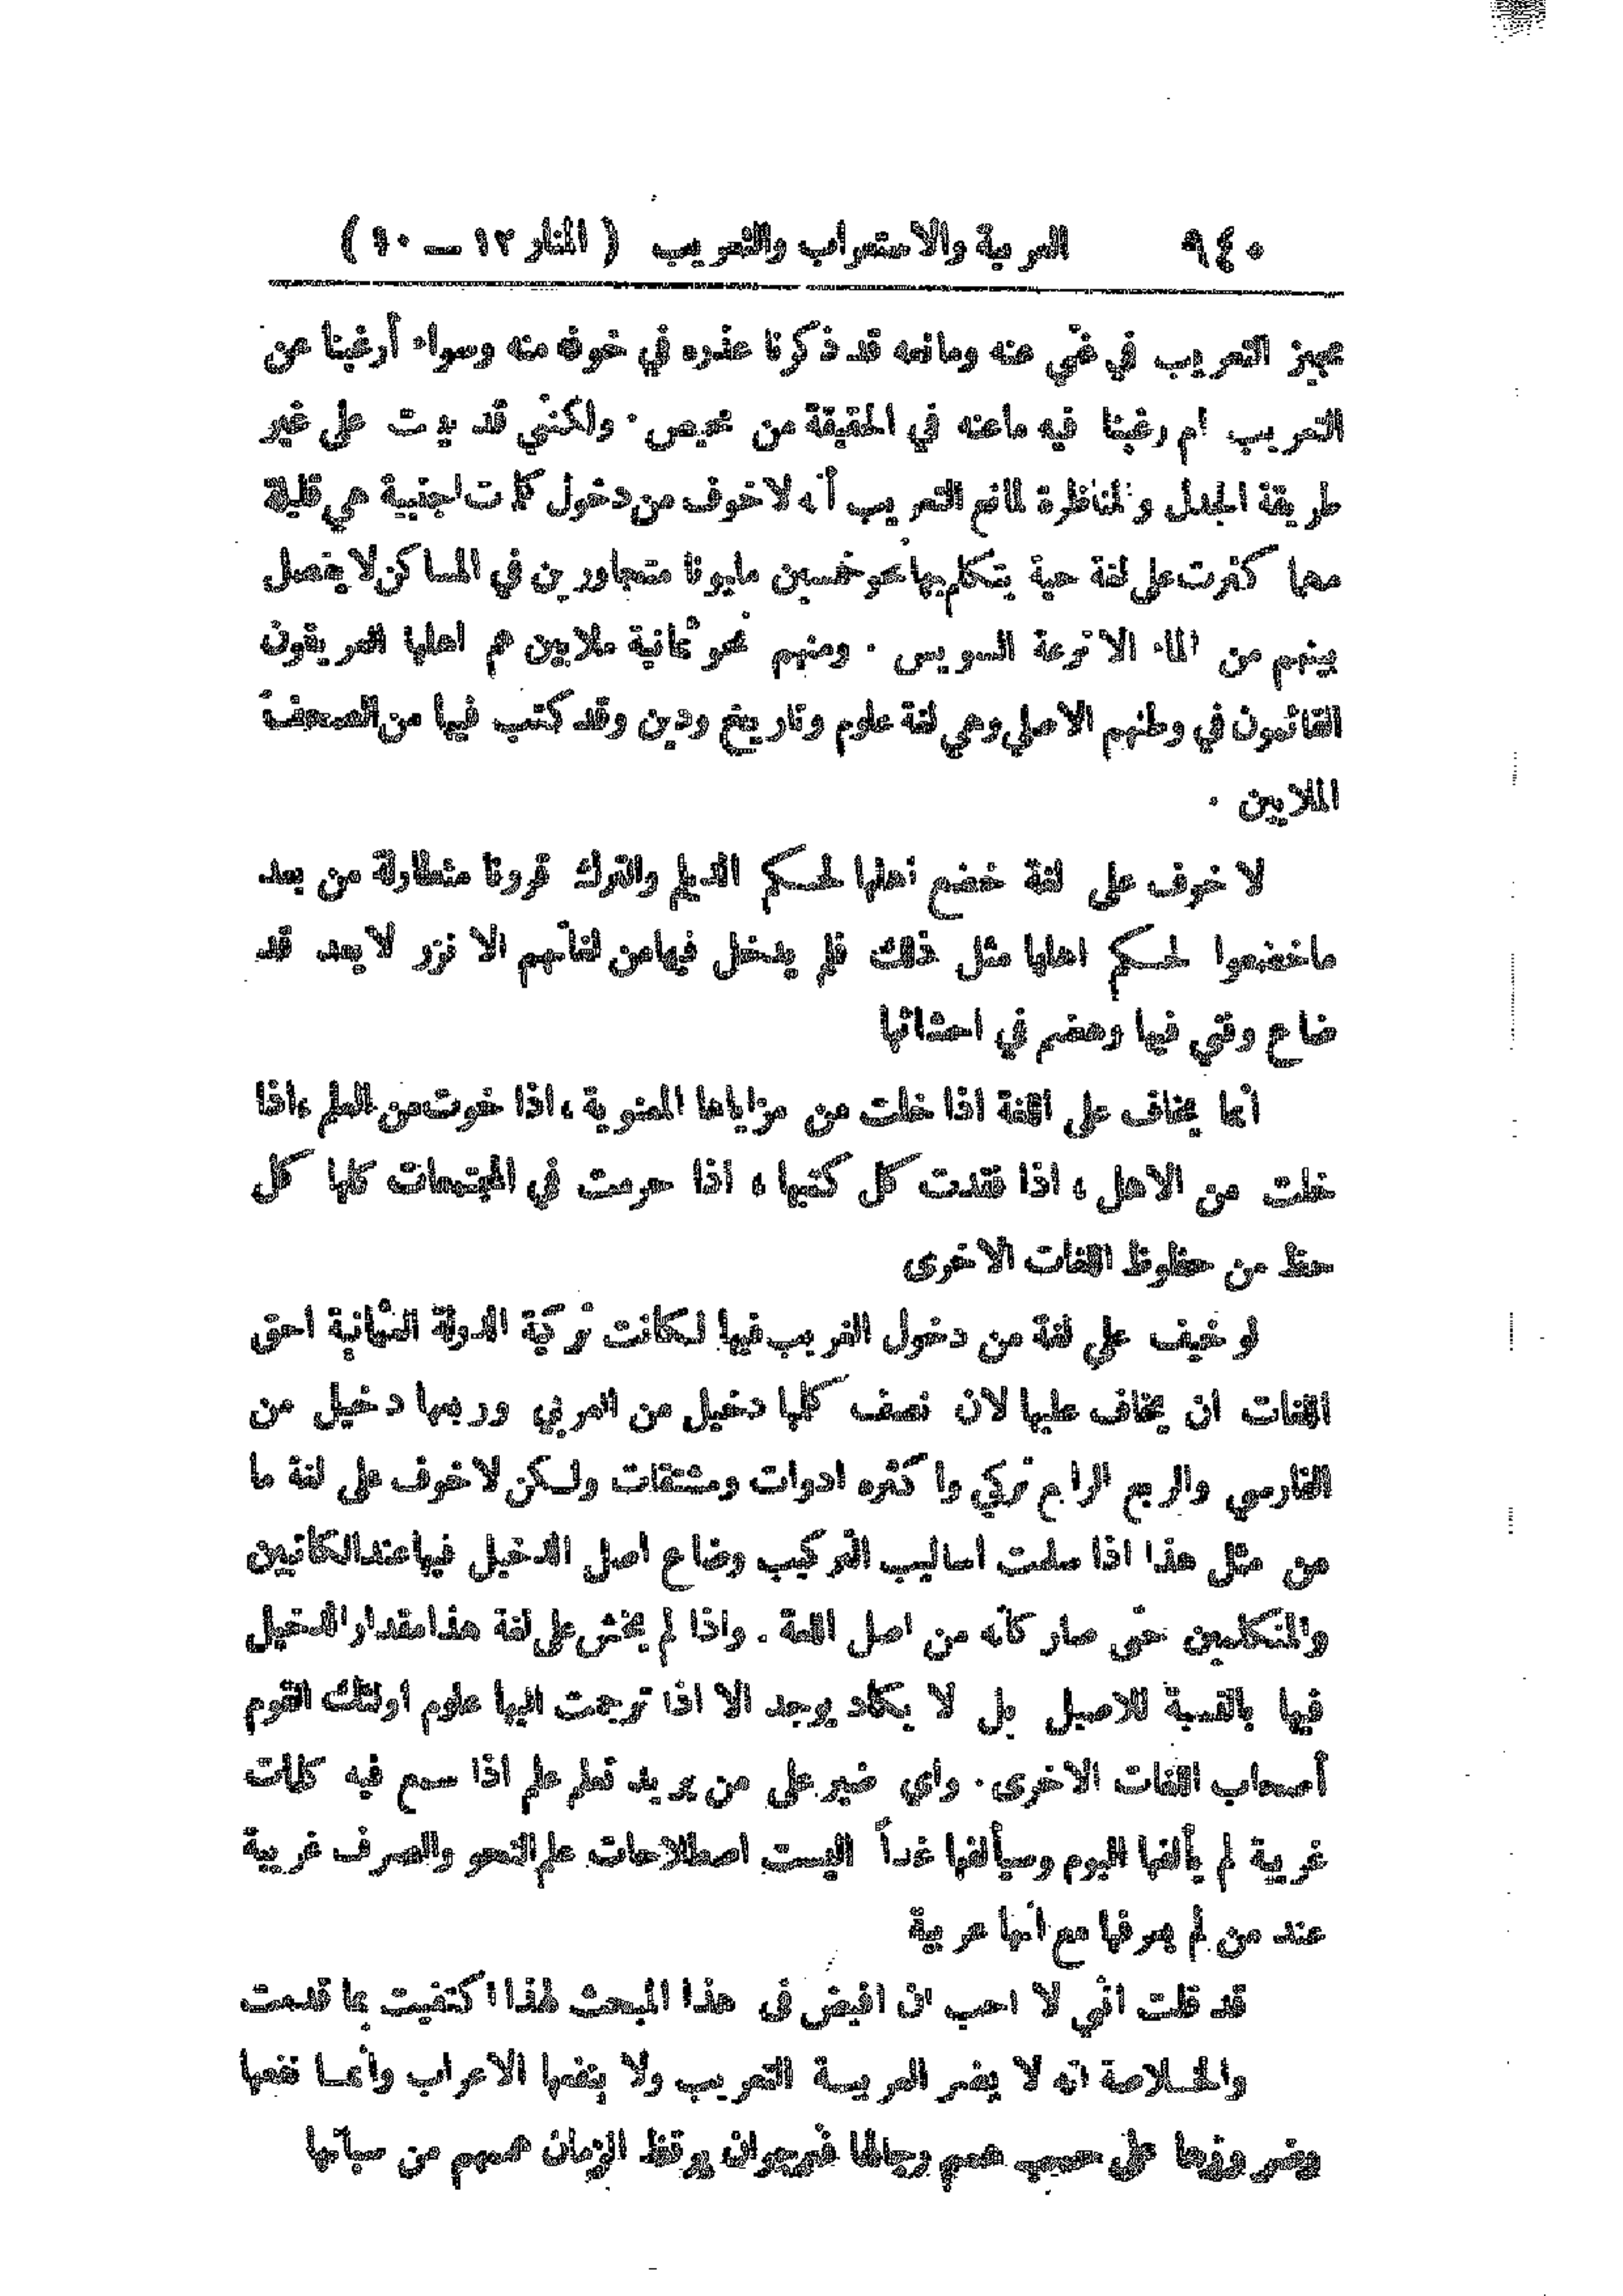 ٩٤٠ العربية والاستعراب والتعريب ( المنار ١٢ — ١٠ )
مجيز التعريب في غنى عنه ومانعه قد ذكرنا عذره في خوفه منه وسواء أرغبنا عن
التعريب ام رغبنا فيه ماعنه في الحقيقة من محيص . ولكنني قد بينت على غير
طريقة الجدل والمناظرة لمانع التعريب أنه لا خوف من دخول كلمات اجنبية هي قليلة
مهما كثرت على لغة حية يتكلم بها نحو خمسين مليونا متجاورين في المساكن لا يفصل
بينهم من الماء الا ترعة السويس . ومنهم نحو ثمانية ملايين هم اهلها العريقون
القائمون في وطنهم الاصلي وهي لغة علوم وتاريخ ودين وقد كتب فيها من الصحف
الملايين .
لا خوف على لغة خضع أهلها لحكم الديلم والترك قرونا متطاولة من بعد
ماخضعوا لحكم اهلها مثل ذلك فلم يدخل فيها من لغاتهم الا نزر لا يعد قد
ضاع وفني فيها وهضم في احشائها
انما يخاف على اللغة اذا خلت من مزاياها المعنوية ، اذا خوت من العلم ، اذا
خلت من الاهل ، اذا فقدت كل كتبها ، اذا حرمت في المجتمعات كلها كل
حظ من حظوظ اللغات الاخرى
لو خيف على لغة من دخول الغريب فيها لكانت تركية الدولة العثمانية احق
اللغات ان يخاف عليها لان نصف كلمها دخيل من العربي وربعها دخيل من
الفارسي والربع الرابع تركي وأكثره ادوات ومشتقات ولكن لا خوف على لغة ما
من مثل هذا اذا سلمت اساليب التركيب وضاع اصل الدخيل فيها عند الكاتبين
والمتكلمين حتى صار كأنه من اصل اللغة . واذا لم يخش على لغة هذا مقدار الدخيل
فيها بالنسبة للاصيل بل لا يكاد يوجد الا اذا ترجمت اليها علوم أولئك القوم
أصحاب اللغات الاخرى . واي ضير على من يريد تعلم علم اذا سمع فيه كلمات
غريبة لم يألفها اليوم وسيألفها غداً اليست اصطلاحات علم النحو والصرف غريبة
عند من لم يعرفها مع انها عربية
قد قلت انني لا احب ان افيض في هذا المبحث لهذا اكتفيت بما قدمت
والخلاصة انه لا يضر العربية التعريب ولا ينفعها الاعراب وأنما نفعها
وضر ورفعها على حسب همم رجالها فنرجو ان يوقظ الزمان هممهم من سباتها